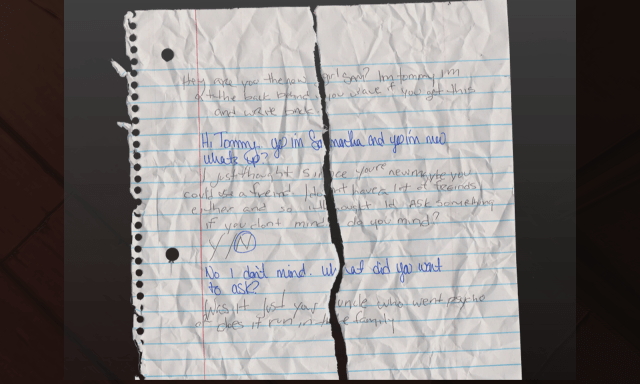 Hey, are you the new girl Sam? Im tommy I'm
at the back behind you wave if you get this
and write back
Hi Tommy, yep im Samantha and yep im new
whats up?
I just thought since youre new maybe you
could use a freind I dont have a lot of freinds
either and so I thought Id ask something
if you dont mind, do you mind?
Y/N
No I don't mind. What did you want
to ask?
Was it just your uncle who went psycho
or does it run in the family